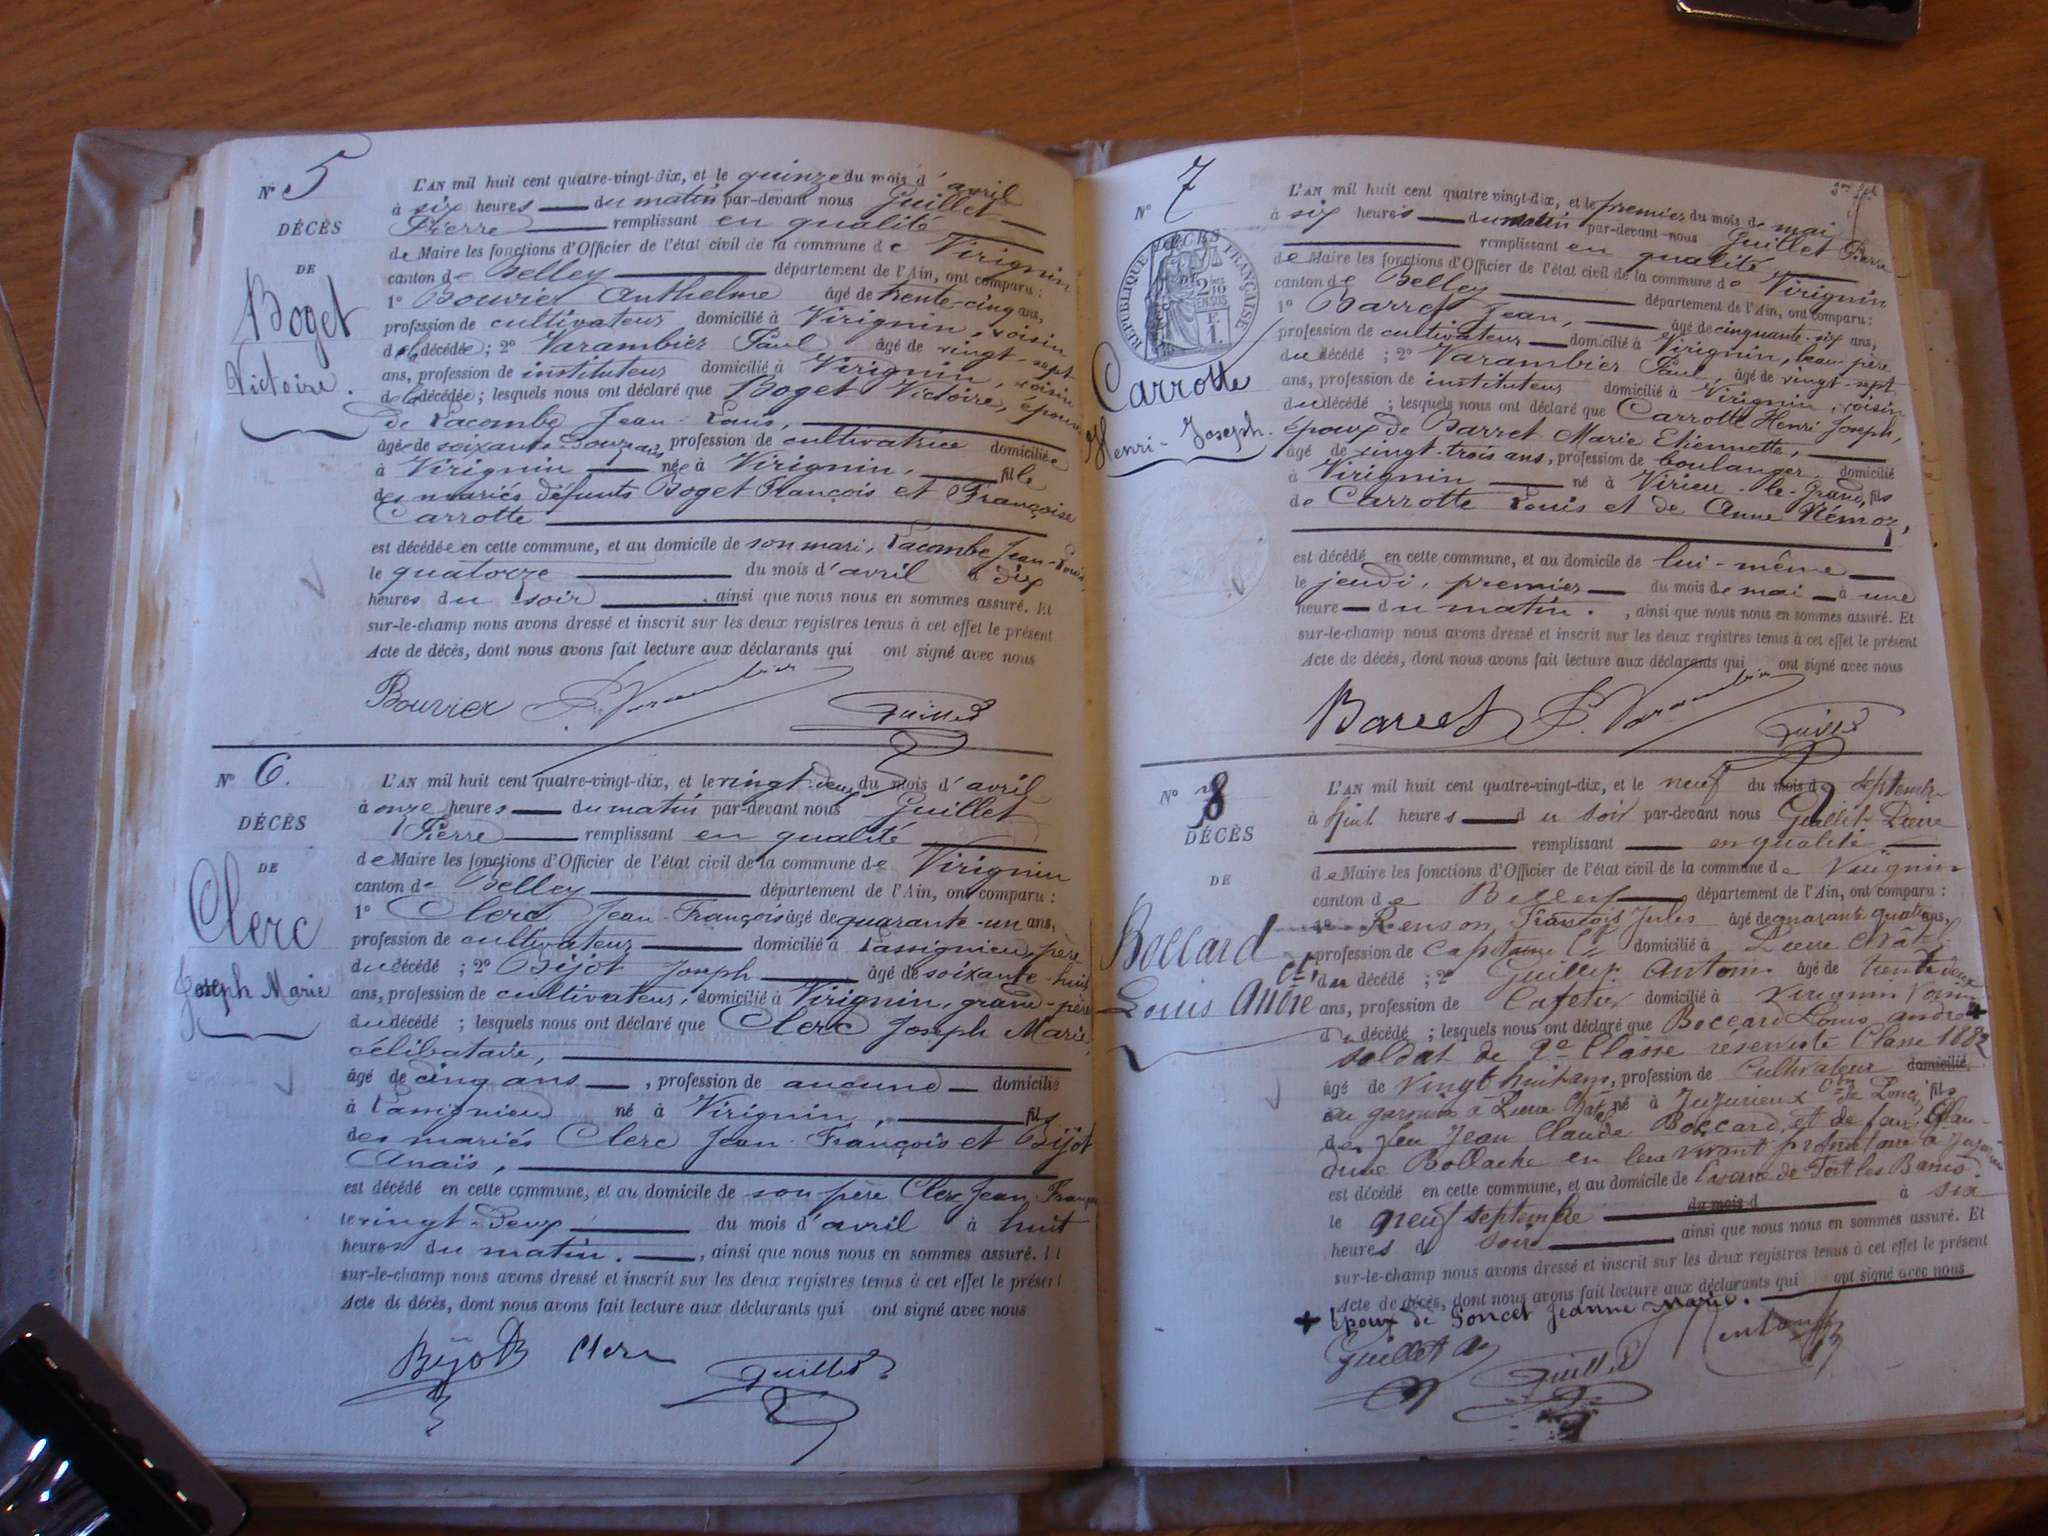 N° 5
DÉCÈS
DE
Boget
Victoire.
L'AN mil huit cent quatre-vingt-dix, et le quinze du mois d'avril
à six heures du matin par-devant nous Guillet
Pierre remplissant en qualité
de Maire les fonctions d'Officier de l'état civil de la commune de Virignin
canton de Belley département de l'Ain, ont comparu :
1° Bouvier Anthelme âgé de trente-cinq ans,
profession de cultivateur domicilié à Virignin, voisin
de la décédée ; 2° Varambier Paul âgé de vingt-sept
ans, profession de instituteur domicilié à Virignin, voisin
de la décédée ; lesquels nous ont déclaré que Boget Victoire, épouse
de Lacombe Jean-Louis,
âgée de soixante-douze ans, profession de cultivatrice domiciliée
à Virignin née à Virignin, fille
des mariés défunts Boget François et Françoise
Carrotte
est décédée en cette commune, et au domicile de son mari, Lacombe Jean-Louis
le quatorze du mois d'avril à dix
heures du soir, ainsi que nous nous en sommes assuré. Et
sur-le-champ nous avons dressé et inscrit sur les deux registres tenus à cet effet le présent
Acte de décès, dont nous avons fait lecture aux déclarants qui ont signé avec nous
Bouvier P. Varambier Guillet
N° 6.
DÉCÈS
DE
Clerc
Joseph Marie
L'AN mil huit cent quatre-vingt-dix, et le vingt-deux du mois d'avril
à onze heures du matin par-devant nous Guillet
Pierre remplissant en qualité
de Maire les fonctions d'Officier de l'état civil de la commune de Virignin
canton de Belley département de l'Ain, ont comparu :
1° Clerc Jean-François âgé de quarante-un ans,
profession de cultivateur domicilié à Lassignieu, père
du décédé ; 2° Bijot Joseph âgé de soixante-huit
ans, profession de cultivateur, domicilié à Virignin, grand-père
du décédé ; lesquels nous ont déclaré que Clerc Joseph Marie,
célibataire,
âgé de cinq ans, profession de aucune domicilié
à Lassignieu né à Virignin, fils
des mariés Clerc Jean-François et Bijot
Anaïs,
est décédé en cette commune, et au domicile de son père Clerc Jean François
le vingt-deux du mois d'avril à huit
heures du matin., ainsi que nous nous en sommes assuré. Et
sur-le-champ nous avons dressé et inscrit sur les deux registres tenus à cet effet le présent
Acte de décès, dont nous avons fait lecture aux déclarants qui ont signé avec nous
Bijot Clerc Guillet
N° 7
RÉPUBLIQUE FRANÇAISE
Carrotte
Henri-Joseph.
L'AN mil huit cent quatre vingt-dix, et le premier du mois de mai
à six heures du matin par-devant nous Guillet Pierre
remplissant en qualité
de Maire les fonctions d'Officier de l'état civil de la commune de Virignin
canton de Belley département de l'Ain, ont comparu :
1° Barret Jean, âgé de cinquante-six ans,
profession de cultivateur domicilié à Virignin, beau-père
du décédé ; 2° Varambier Paul, âgé de vingt-sept
ans, profession de instituteur domicilié à Virignin, voisin
du décédé ; lesquels nous ont déclaré que Carrotte Henri Joseph,
époux de Barret Marie Etiennette,
âgé de vingt-trois ans, profession de boulanger, domicilié
à Virignin né à Virieu-le-Grand, fils
de Carrotte Louis et de Anne Némoz,
est décédé en cette commune, et au domicile de lui-même
le jeudi, premier du mois de mai à une
heure du matin., ainsi que nous nous en sommes assuré. Et
sur-le-champ nous avons dressé et inscrit sur les deux registres tenus à cet effet le présent
Acte de décès, dont nous avons fait lecture aux déclarants qui ont signé avec nous
Barret P. Varambier Guillet
N° 8
DÉCÈS
DE
Boccard
Louis André
L'AN mil huit cent quatre-vingt-dix, et le neuf du mois de septembre
à heures du soir par-devant nous Guillet Pierre
remplissant en qualité
de Maire les fonctions d'Officier de l'état civil de la commune de Virignin
canton de Belley département de l'Ain, ont comparu :
1° Renson, François Jules âgé de quarante quatre ans,
profession de Capitaine domicilié à Pierre Chât
du décédé ; 2° Guillet Antoine âgé de trente deux
ans, profession de Cafetier domicilié à Virignin Voisin
du décédé ; lesquels nous ont déclaré que Boccard Louis andré +
soldat de 2e Classe réserviste Classe 1882
âgé de vingt huit ans, profession de Cultivateur domicilié
en garnison à Pierre Chat né à Jujurieux fils
de feu Jean Claude Boccard, et de feue Clau-
dine Bollache en leur vivant propriétaire à
est décédé en cette commune, et au domicile de Fort les Bancs
le neuf septembre du mois d à six
heures du soir ainsi que nous nous en sommes assuré. Et
sur-le-champ nous avons dressé et inscrit sur les deux registres tenus à cet effet le présent
Acte de décès, dont nous avons fait lecture aux déclarants qui ont signé avec nous
+ Epoux de Goncet Jeanne Marie.
Guillet A Guillet